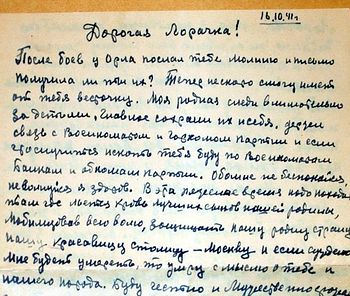 16.10.41г
Дорогая Лорочка!
После боев у Орла послал тебе молнию и письмо
получила ли ты их? Теперь не скоро смогу иметь
от тебя весточку. Моя родная следи внимательно
за детьми, главное сохрани их и себя, держи
связь с Военкоматом и горкомом партии и если
что случится искать тебя буду по Военкоматам
Банкам и обкомам партии. Обо мне не беспокойся,
не волнуйся я здоров. В это тяжелое время надо
там где льется кровь лучших сынов нашей родины,
мобилизовав всю волю, защищать нашу родную страну
нашу красавицу столицу – Москву и если суждено
мне будет умереть, то умру с мыслью о тебе и
нашего народа. Буду честно и мужественно